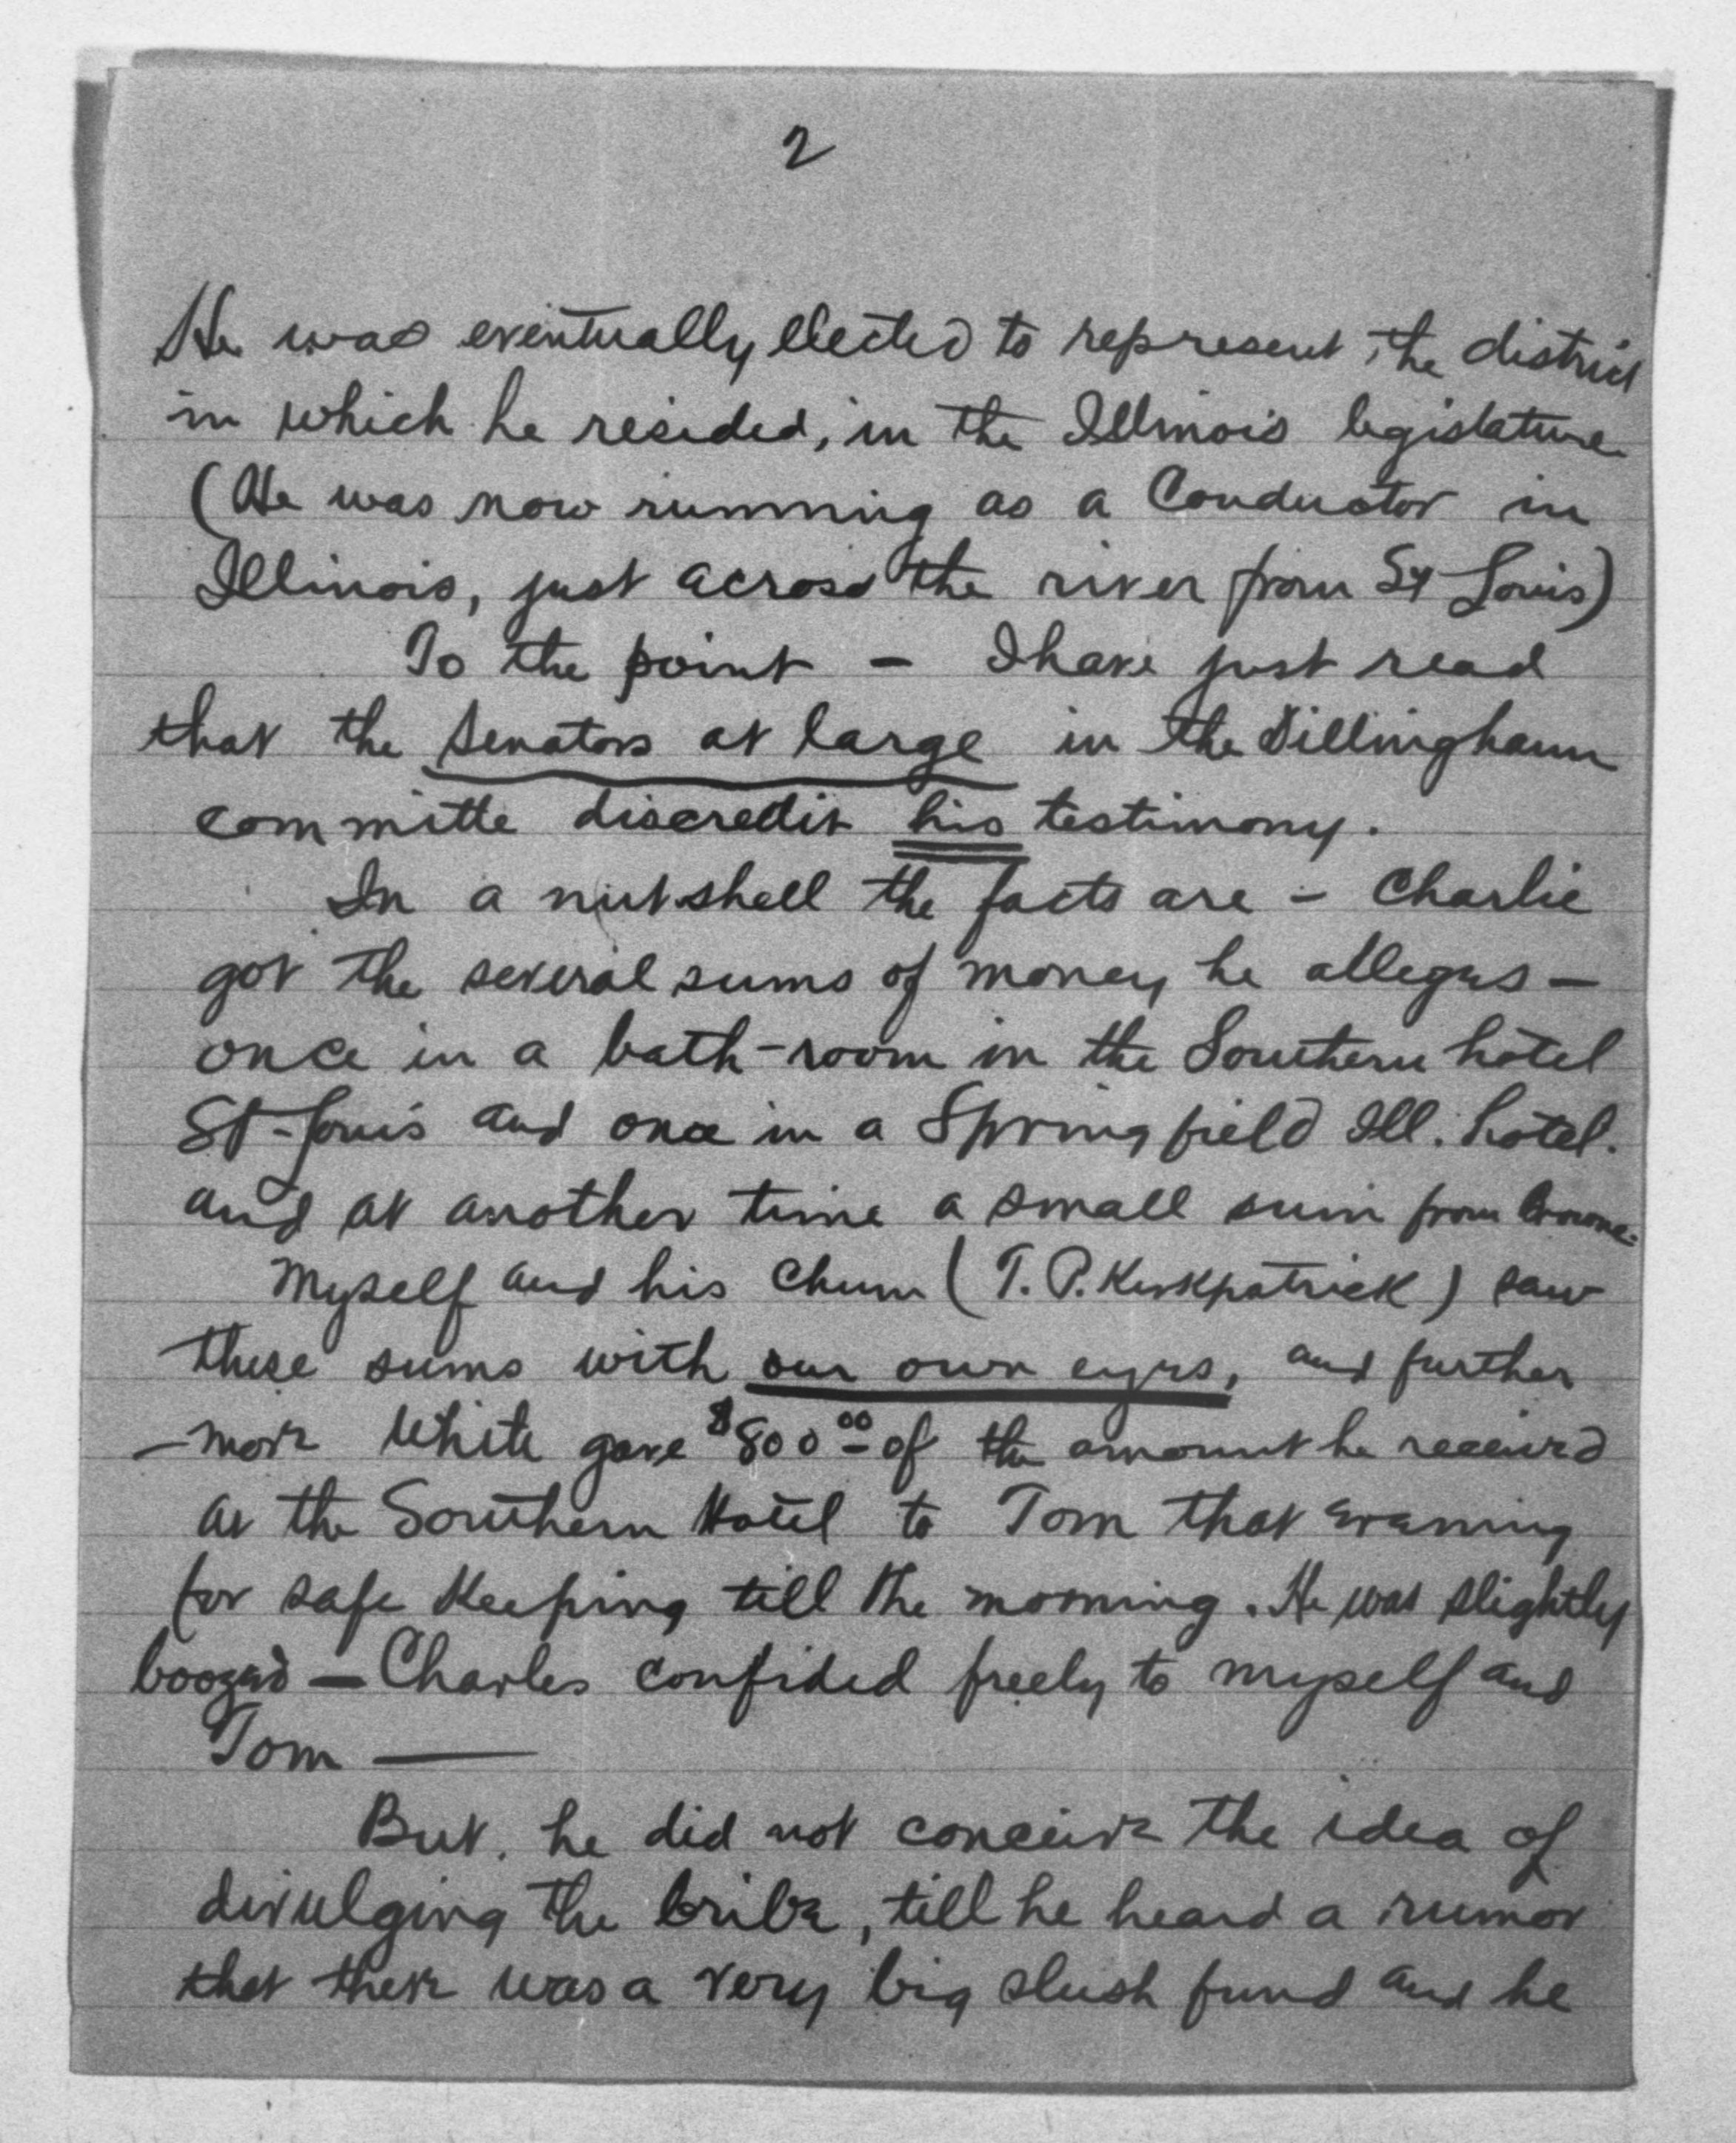 2
He was eventually elected to represent the district
in which he resided, in the Illinois legislature
(He was now running as a Conductor in
Illinois, just across the river from St Louis)
To the point – I have just read
that the Senators at large in the Dillingham
committe discredit his testimony.
In a nutshell the facts are – Charlie
got the several sums of money he alleges –
once in a bath-room in the Southern hotel
St-Louis and once in a Springfield Ill. hotel.
and at another time a small sum from Browne.
Myself and his Chum (T. P. Kirkpatrick) saw
these sums with our own eyes, and further
-more White gave $800.00 of the amount he received
at the Southern Hotel to Tom that evening
for safe keeping till the morning. He was slightly
boozed – Charles confided freely to myself and
Tom —
But. he did not conceive the idea of
divulging the bribe, till he heard a rumor
that there was a very big slush fund and he